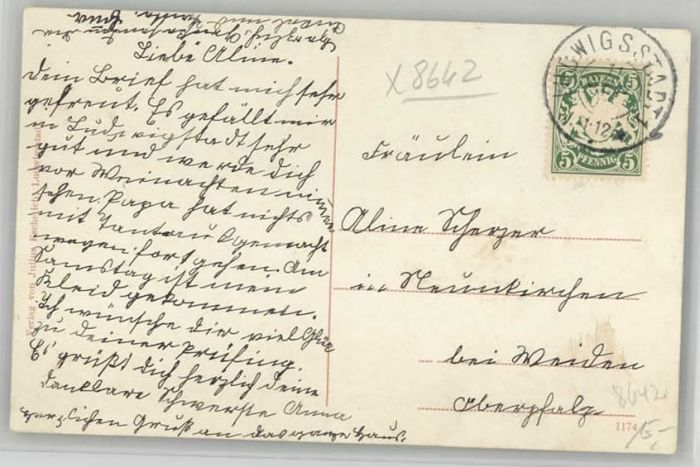 Liebe Aline.
Dein Brief hat mich sehr
gefreut. Es gefällt mir
in Ludwigstadt sehr
gut und werde dich
vor Weinachten nimmer
sehen. Papa hat nichts
mit Tantau
wegen fort gehen. Am
Samstag ist mein
Kleid gekommen.
Ich wünsche dir viel Glück
zu deiner Prüfung.
Es grüßt dich herzlich deine
dankbare Schwester Anna
herzlichen Gruß an das ganze Haus.
X 8642
BAYERN
5 5
5 PFENNIG 5
Fräulein
Aline Scherzer
in Neunkirchen
bei Weiden
Oberpfalz.
8642
1174
15,-
Verlag von Julius